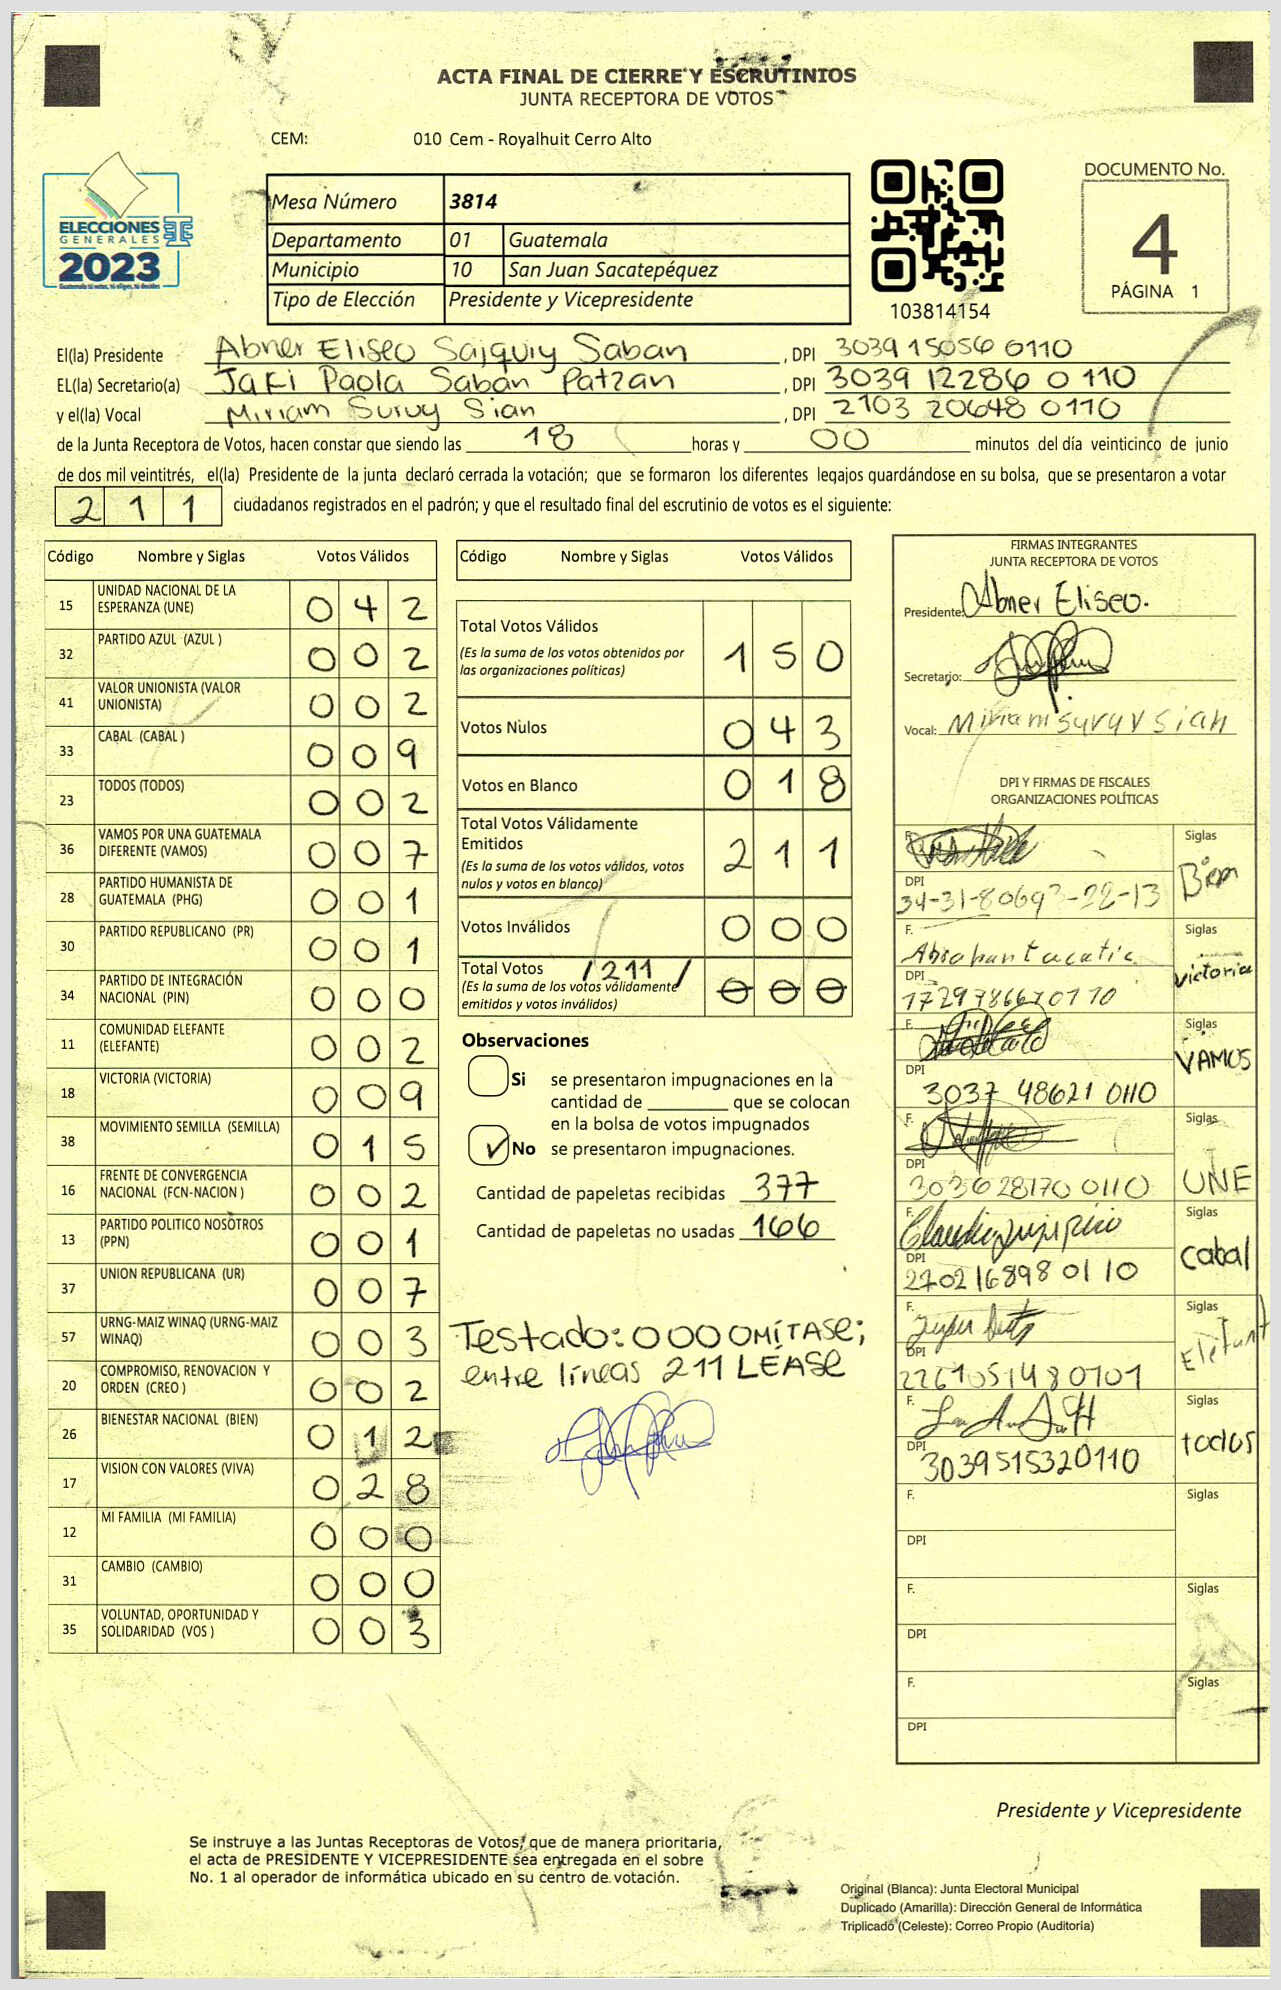 ACTA FINAL DE CIERRE Y ESCRUTINIOS
JUNTA RECEPTORA DE VOTOS
CEM: 010 Cem - Royalhuit Cerro Alto
ELECCIONES
GENERALES
2023
Guatemala tú votas, tú eliges, tú decides
Mesa Número 3814
Departamento 01 Guatemala
Municipio 10 San Juan Sacatepéquez
Tipo de Elección Presidente y Vicepresidente
103814154
DOCUMENTO No.
4
PÁGINA 1
El(la) Presidente Abner Eliseo Sajquiy Saban, DPI 3039 15056 0110
EL(la) Secretario(a) Jaki Paola Saban Patzan, DPI 3039 12286 0110
y el(la) Vocal Miriam Suruy Sian, DPI 2103 20648 0110
de la Junta Receptora de Votos, hacen constar que siendo las 18 horas y 00 minutos del día veinticinco de junio
de dos mil veintitrés, el(la) Presidente de la junta declaró cerrada la votación; que se formaron los diferentes legajos guardándose en su bolsa, que se presentaron a votar
211 ciudadanos registrados en el padrón; y que el resultado final del escrutinio de votos es el siguiente:
Código Nombre y Siglas Votos Válidos
15 UNIDAD NACIONAL DE LA ESPERANZA (UNE) 042
32 PARTIDO AZUL (AZUL ) 002
41 VALOR UNIONISTA (VALOR UNIONISTA) 002
33 CABAL (CABAL ) 009
23 TODOS (TODOS) 002
36 VAMOS POR UNA GUATEMALA DIFERENTE (VAMOS) 007
28 PARTIDO HUMANISTA DE GUATEMALA (PHG) 001
30 PARTIDO REPUBLICANO (PR) 001
34 PARTIDO DE INTEGRACIÓN NACIONAL (PIN) 000
11 COMUNIDAD ELEFANTE (ELEFANTE) 002
18 VICTORIA (VICTORIA) 009
38 MOVIMIENTO SEMILLA (SEMILLA) 015
16 FRENTE DE CONVERGENCIA NACIONAL (FCN-NACION ) 002
13 PARTIDO POLITICO NOSOTROS (PPN) 001
37 UNION REPUBLICANA (UR) 007
57 URNG-MAIZ WINAQ (URNG-MAIZ WINAQ) 003
20 COMPROMISO, RENOVACION Y ORDEN (CREO ) 002
26 BIENESTAR NACIONAL (BIEN) 012
17 VISION CON VALORES (VIVA) 028
12 MI FAMILIA (MI FAMILIA) 000
31 CAMBIO (CAMBIO) 000
35 VOLUNTAD, OPORTUNIDAD Y SOLIDARIDAD (VOS ) 003
Código Nombre y Siglas Votos Válidos
Total Votos Válidos 150
(Es la suma de los votos obtenidos por
las organizaciones políticas)
Votos Nulos 043
Votos en Blanco 018
Total Votos Válidamente
Emitidos 211
(Es la suma de los votos válidos, votos
nulos y votos en blanco)
Votos Inválidos 000
Total Votos /211/ 000
(Es la suma de los votos válidamente
emitidos y votos inválidos)
Observaciones
Si se presentaron impugnaciones en la
cantidad de ________ que se colocan
en la bolsa de votos impugnados
✓ No se presentaron impugnaciones.
Cantidad de papeletas recibidas 377
Cantidad de papeletas no usadas 166
Testado: 000 OMÍTASE;
entre líneas 211 LÉASE
FIRMAS INTEGRANTES
JUNTA RECEPTORA DE VOTOS
Presidente: Abner Eliseo.
Secretario:
Vocal: Miriam Suruy Sian
DPI Y FIRMAS DE FISCALES
ORGANIZACIONES POLÍTICAS
F. Siglas
Bien
DPI
F. Siglas
victoria
DPI
F. Siglas
VAMOS
DPI 3037 48621 0110
F. Siglas
UNE
DPI 3036 28170 0110
F. Siglas
cabal
DPI 2702 16898 0110
F. Siglas
DPI 2261051480101
F. Siglas
todos
DPI 3039515320110
F. Siglas
DPI
F. Siglas
DPI
F. Siglas
DPI
Presidente y Vicepresidente
Se instruye a las Juntas Receptoras de Votos, que de manera prioritaria,
el acta de PRESIDENTE Y VICEPRESIDENTE sea entregada en el sobre
No. 1 al operador de informática ubicado en su centro de votación.
Original (Blanca): Junta Electoral Municipal
Duplicado (Amarilla): Dirección General de Informática
Triplicado (Celeste): Correo Propio (Auditoría)